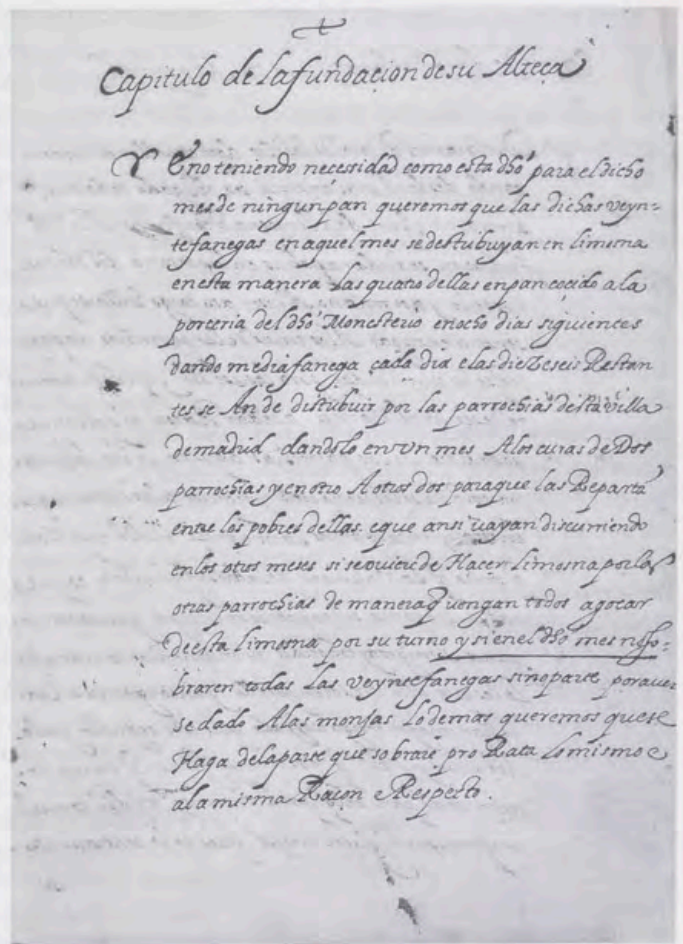 Capitulo de la fundacion de su Alteça
Y Eno teniendo necessidad como esta dho para el dicho
mes de ningun pan queremos que las dichas veyn=
te fanegas en aquel mes se destribuyan en limosna
en esta manera las quatro dellas en pan cocido a la
porteria del dho Monesterio en ocho dias siguientes
dando media fanega cada dia e las diez e seis Restan
tes se An de distribuir por las parrochias desta villa
de madrid dandolo en vn mes A los curas de Dos
parrochias y en otro A otros dos para que las Reparta
entre los pobres dellas. e que ansi vayan discurriendo
en los otros meses si se oviere de Hacer Limosna por las
otras parrochias de manera q vengan todos a goçar
de esta limosna por su turno y si en el dho mes no so=
braren todas las veynte fanegas sino parte por aver
se dado A las monjas Lo demas queremos que se
Haga de la parte que sobrare pro Rata Lo mismo e
a la misma Raçon e Respecto.